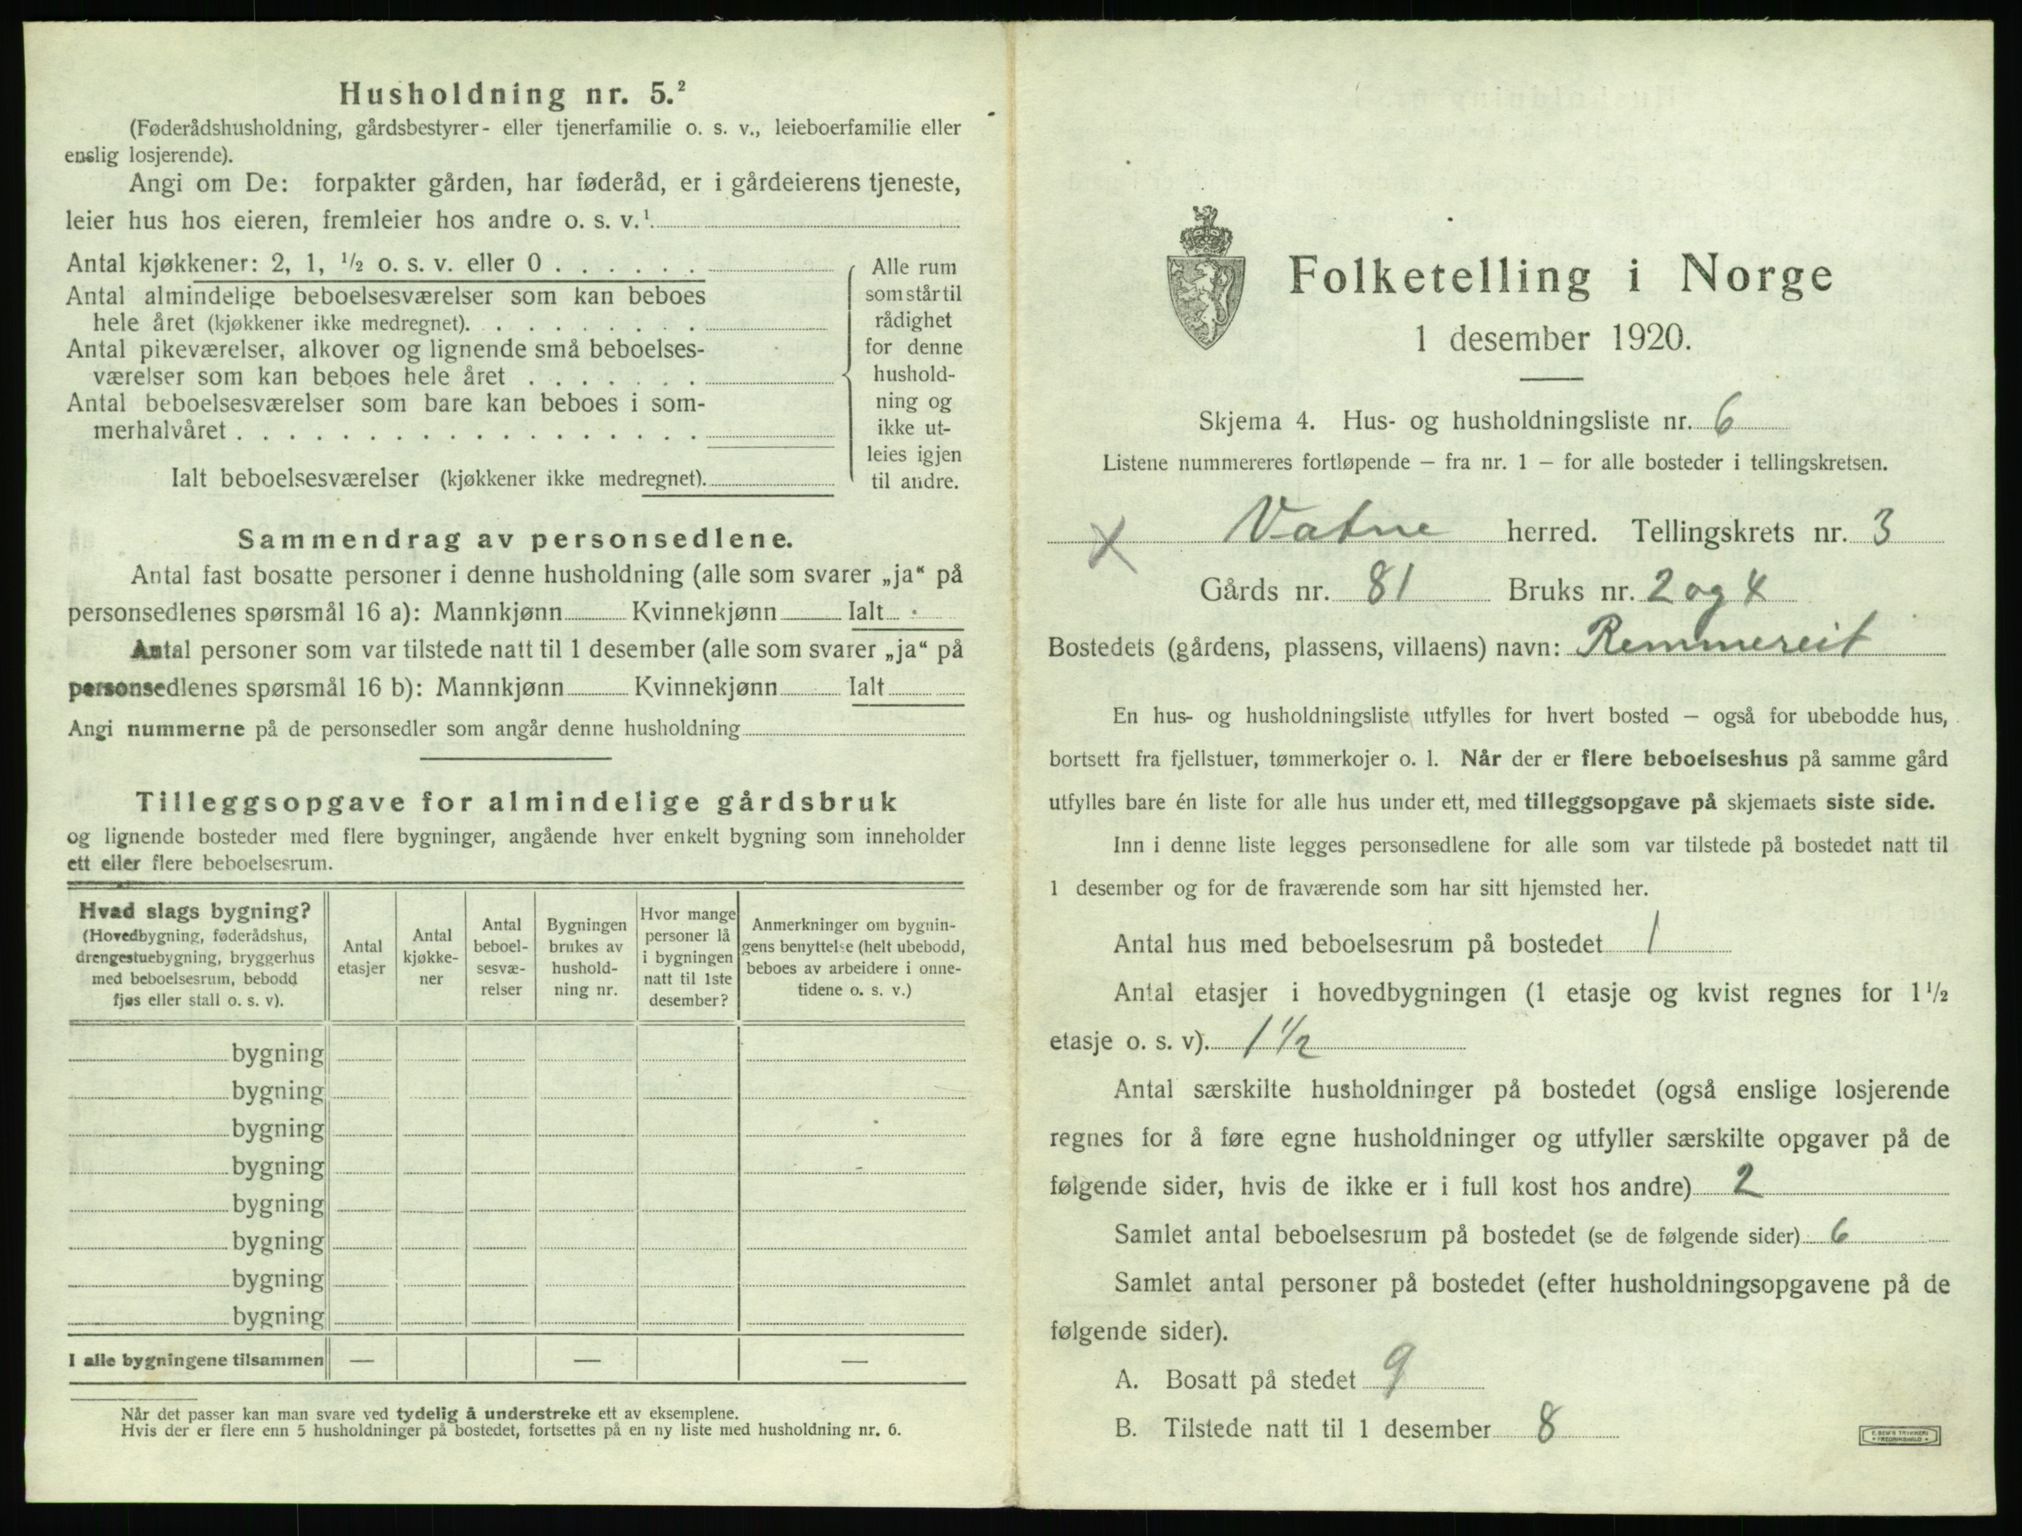 Husholdning nr. 5.²
(Føderådshusholdning, gårdsbestyrer- eller tjenerfamilie o. s. v., leieboerfamilie eller
enslig losjerende).
Angi om De: forpakter gården, har føderåd, er i gårdeierens tjeneste,
leier hus hos eieren, fremleier hos andre o. s. v.¹
Antal kjøkkener: 2, 1, ½ o. s. v. eller 0 . . . . . .
Antal almindelige beboelsesværelser som kan beboes
hele året (kjøkkener ikke medregnet). . . . . . . . . .
Antal pikeværelser, alkover og lignende små beboelses-
værelser som kan beboes hele året . . . . . . .
Antal beboelsesværelser som bare kan beboes i som-
merhalvåret . . . . . . . . . . . . . . . . . .
Ialt beboelsesværelser (kjøkkener ikke medregnet).
Alle rum
som står til
rådighet
for denne
hushold-
ning og
ikke ut-
leies igjen
til andre.
Sammendrag av personsedlene.
Antal fast bosatte personer i denne husholdning (alle som svarer „ja“ på
personsedlenes spørsmål 16 a): Mannkjønn Kvinnekjønn Ialt
Antal personer som var tilstede natt til 1 desember (alle som svarer „ja“ på
personsedlenes spørsmål 16 b): Mannkjønn Kvinnekjønn Ialt
Angi nummerne på de personsedler som angår denne husholdning
Tilleggsopgave for almindelige gårdsbruk
og lignende bosteder med flere bygninger, angående hver enkelt bygning som inneholder
ett eller flere beboelsesrum.
Hvad slags bygning?
(Hovedbygning, føderådshus,
drengestuebygning, bryggerhus
med beboelsesrum, bebodd
fjøs eller stall o. s. v).
Antal
etasjer
Antal
kjøkke-
ner
Antal
beboel-
sesvæ-
relser
Bygningen
brukes av
hushold-
ning nr.
Hvor mange
personer lå
i bygningen
natt til 1ste
desember?
Anmerkninger om bygnin-
gens benyttelse (helt ubebodd,
beboes av arbeidere i onne-
tidene o. s. v.)
bygning
bygning
bygning
bygning
bygning
bygning
bygning
bygning
I alle bygningene tilsammen — — —
Når det passer kan man svare ved tydelig å understreke ett av eksemplene.
Hvis der er flere enn 5 husholdninger på bostedet, fortsettes på en ny liste med husholdning nr. 6.
Folketelling i Norge
1 desember 1920.
Skjema 4. Hus- og husholdningsliste nr. 6
Listene nummereres fortløpende – fra nr. 1 – for alle bosteder i tellingskretsen.
x Vatne herred. Tellingskrets nr. 3
Gårds nr. 81 Bruks nr. 2 og 4
Bostedets (gårdens, plassens, villaens) navn: Remmereit
En hus- og husholdningsliste utfylles for hvert bosted – også for ubebodde hus,
bortsett fra fjellstuer, tømmerkojer o. l. Når der er flere beboelseshus på samme gård
utfylles bare én liste for alle hus under ett, med tilleggsopgave på skjemaets siste side.
Inn i denne liste legges personsedlene for alle som var tilstede på bostedet natt til
1 desember og for de fraværende som har sitt hjemsted her.
Antal hus med beboelsesrum på bostedet 1
Antal etasjer i hovedbygningen (1 etasje og kvist regnes for 1½
etasje o. s. v). 1½
Antal særskilte husholdninger på bostedet (også enslige losjerende
regnes for å føre egne husholdninger og utfyller særskilte opgaver på de
følgende sider, hvis de ikke er i full kost hos andre) 2
Samlet antal beboelsesrum på bostedet (se de følgende sider) 6
Samlet antal personer på bostedet (efter husholdningsopgavene på de
følgende sider).
A. Bosatt på stedet 9
B. Tilstede natt til 1 desember 8